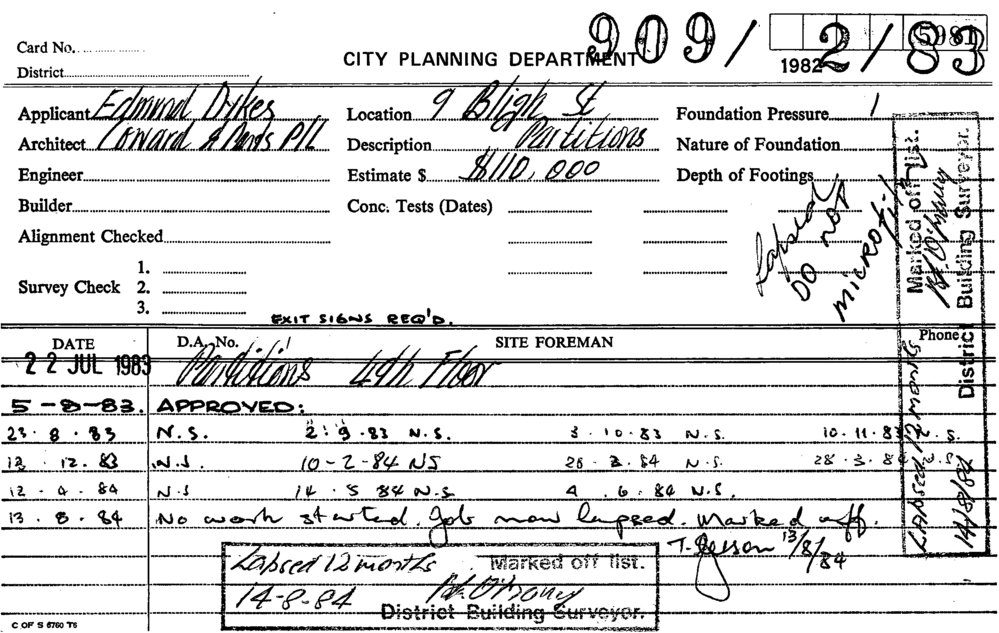 Card No. 909/2/83 5981
CITY PLANNING DEPARTMENT 1982
District
Applicant Edmund Dykes Location 9 Bligh St Foundation Pressure
Architect P/L Description Partitions Nature of Foundation
Engineer Estimate $ $110,000 Depth of Footings
Builder Conc. Tests (Dates)
Alignment Checked
Lapsed
DO NOT
MICROF
1.
Survey Check 2.
3.
EXIT SIGNS REQ'D.
DATE D.A. No. SITE FOREMAN Phone
22 JUL 1983 Partitions 49th Floor
5-8-83. APPROVED:
23.8.83 N.S. 2.9.83 N.S. 3.10.83 N.S. 10.11.83 N.S.
13.12.83 N.S. 10-2-84 NS 28.3.84 N.S.
12.4.84 N.S 14.5 84 N.S 4.6.84 N.S.
13.8.84 No work started. Job now lapsed. Marked off.
T. 13/8/84
Lapsed 12 months Marked off list.
14-8-84
District Building Surveyor.
Marked off list.
District Building Surveyor.
Lapsed 12 months
14/8/84
C OF S 6760 T6